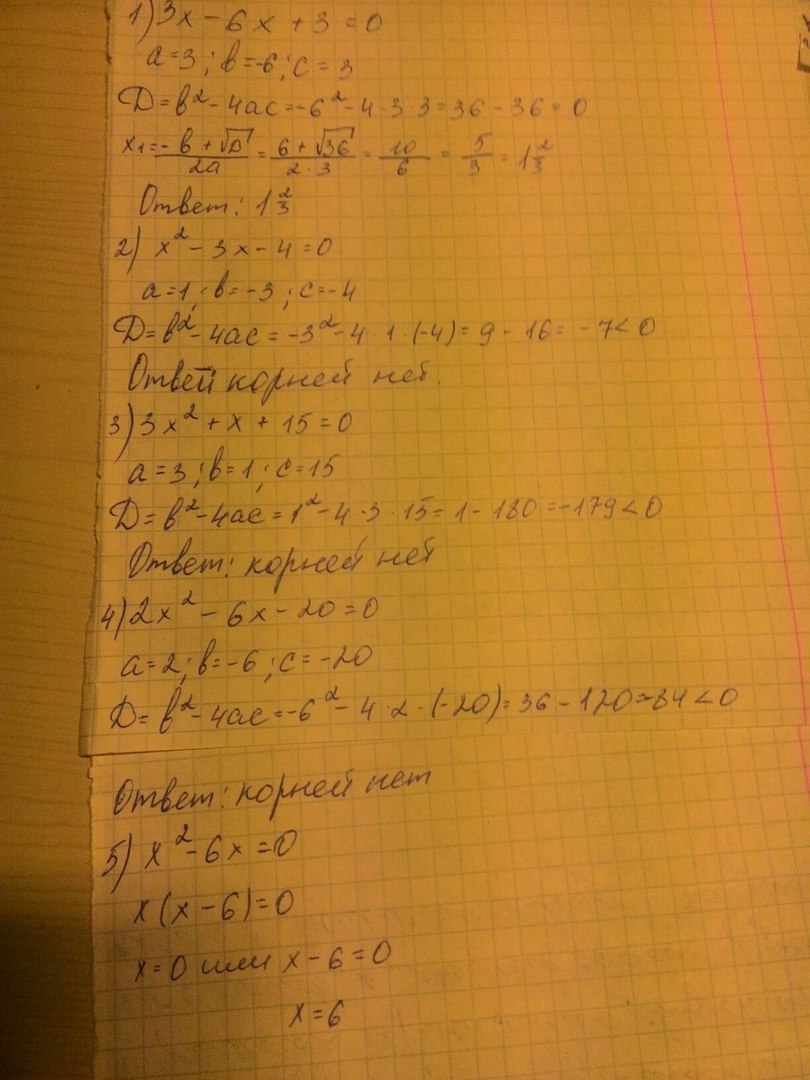 1) 3x - 6x + 3 = 0
a=3; b=-6; c=3
D=b²-4ac=-6²-4·3·3=36-36=0
x₁=(-b+√D)/2a=(6+√36)/2·3=10/6=5/3=1 2/3
Ответ: 1 2/3
2) x²-3x-4=0
a=1; b=-3; c=-4
D=b²-4ac=-3²-4·1·(-4)=9-16=-7<0
Ответ корней нет.
3) 3x²+x+15=0
a=3; b=1; c=15
D=b²-4ac=1²-4·3·15=1-180=-179<0
Ответ: корней нет
4) 2x²-6x-20=0
a=2; b=-6; c=-20
D=b²-4ac=-6²-4·2·(-20)=36-120=-84<0
Ответ: корней нет
5) x²-6x=0
x(x-6)=0
x=0 или x-6=0
x=6